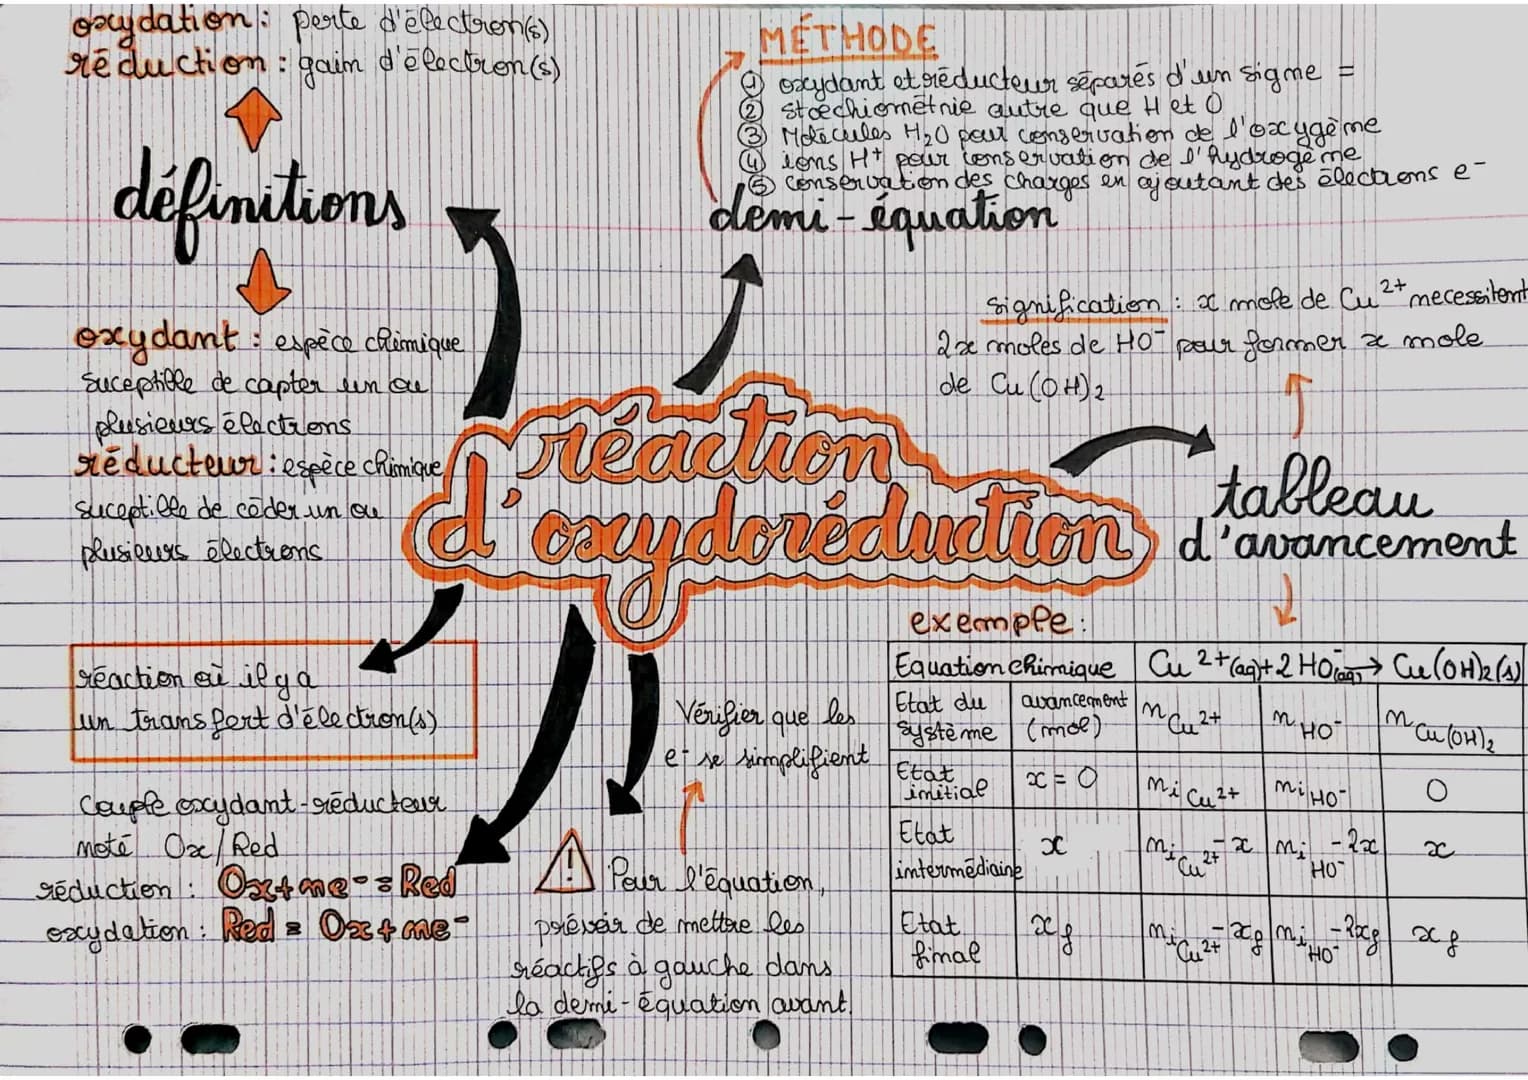 oxydation : perte d'électron(s)
réduction : gain d'électron(s)
définitions
oxydant : espèce chimique
suceptible de capter un ou
plusieurs électrons
réducteur : espèce chimique
suceptible de céder un ou
plusieurs électrons
MÉTHODE
① oxydant et réducteur séparés d'un signe =
② stoechiométrie autre que H et O
③ Molécules H₂O pour conservation de l'oxygène
④ ions H⁺ pour conservation de l'hydrogène
⑤ conservation des charges en ajoutant des électrons e⁻
demi-équation
signification : x mole de Cu²⁺ necessitent
2x moles de HO⁻ pour former x mole
de Cu(OH)₂
réaction
d'oxydoréduction
tableau
d'avancement
réaction où il y a
un transfert d'électron(s)
Couple oxydant-réducteur
noté Ox/Red
réduction : Ox + ne⁻ = Red
oxydation : Red = Ox + ne⁻
Vérifier que les
e⁻ se simplifient
! Pour l'équation,
prévoir de mettre les
réactifs à gauche dans
la demi-équation avant.
exemple :
Equation chimique Cu²⁺(aq) + 2 HO⁻(aq) → Cu(OH)₂(s)
Etat du système avancement (mol) n Cu²⁺ n HO⁻ n Cu(OH)₂
Etat initial x = 0 ni Cu²⁺ ni HO⁻ 0
Etat intermédiaire x ni Cu²⁺ - x ni HO⁻ - 2x x
Etat final xf ni Cu²⁺ - xf ni HO⁻ - 2xf xf